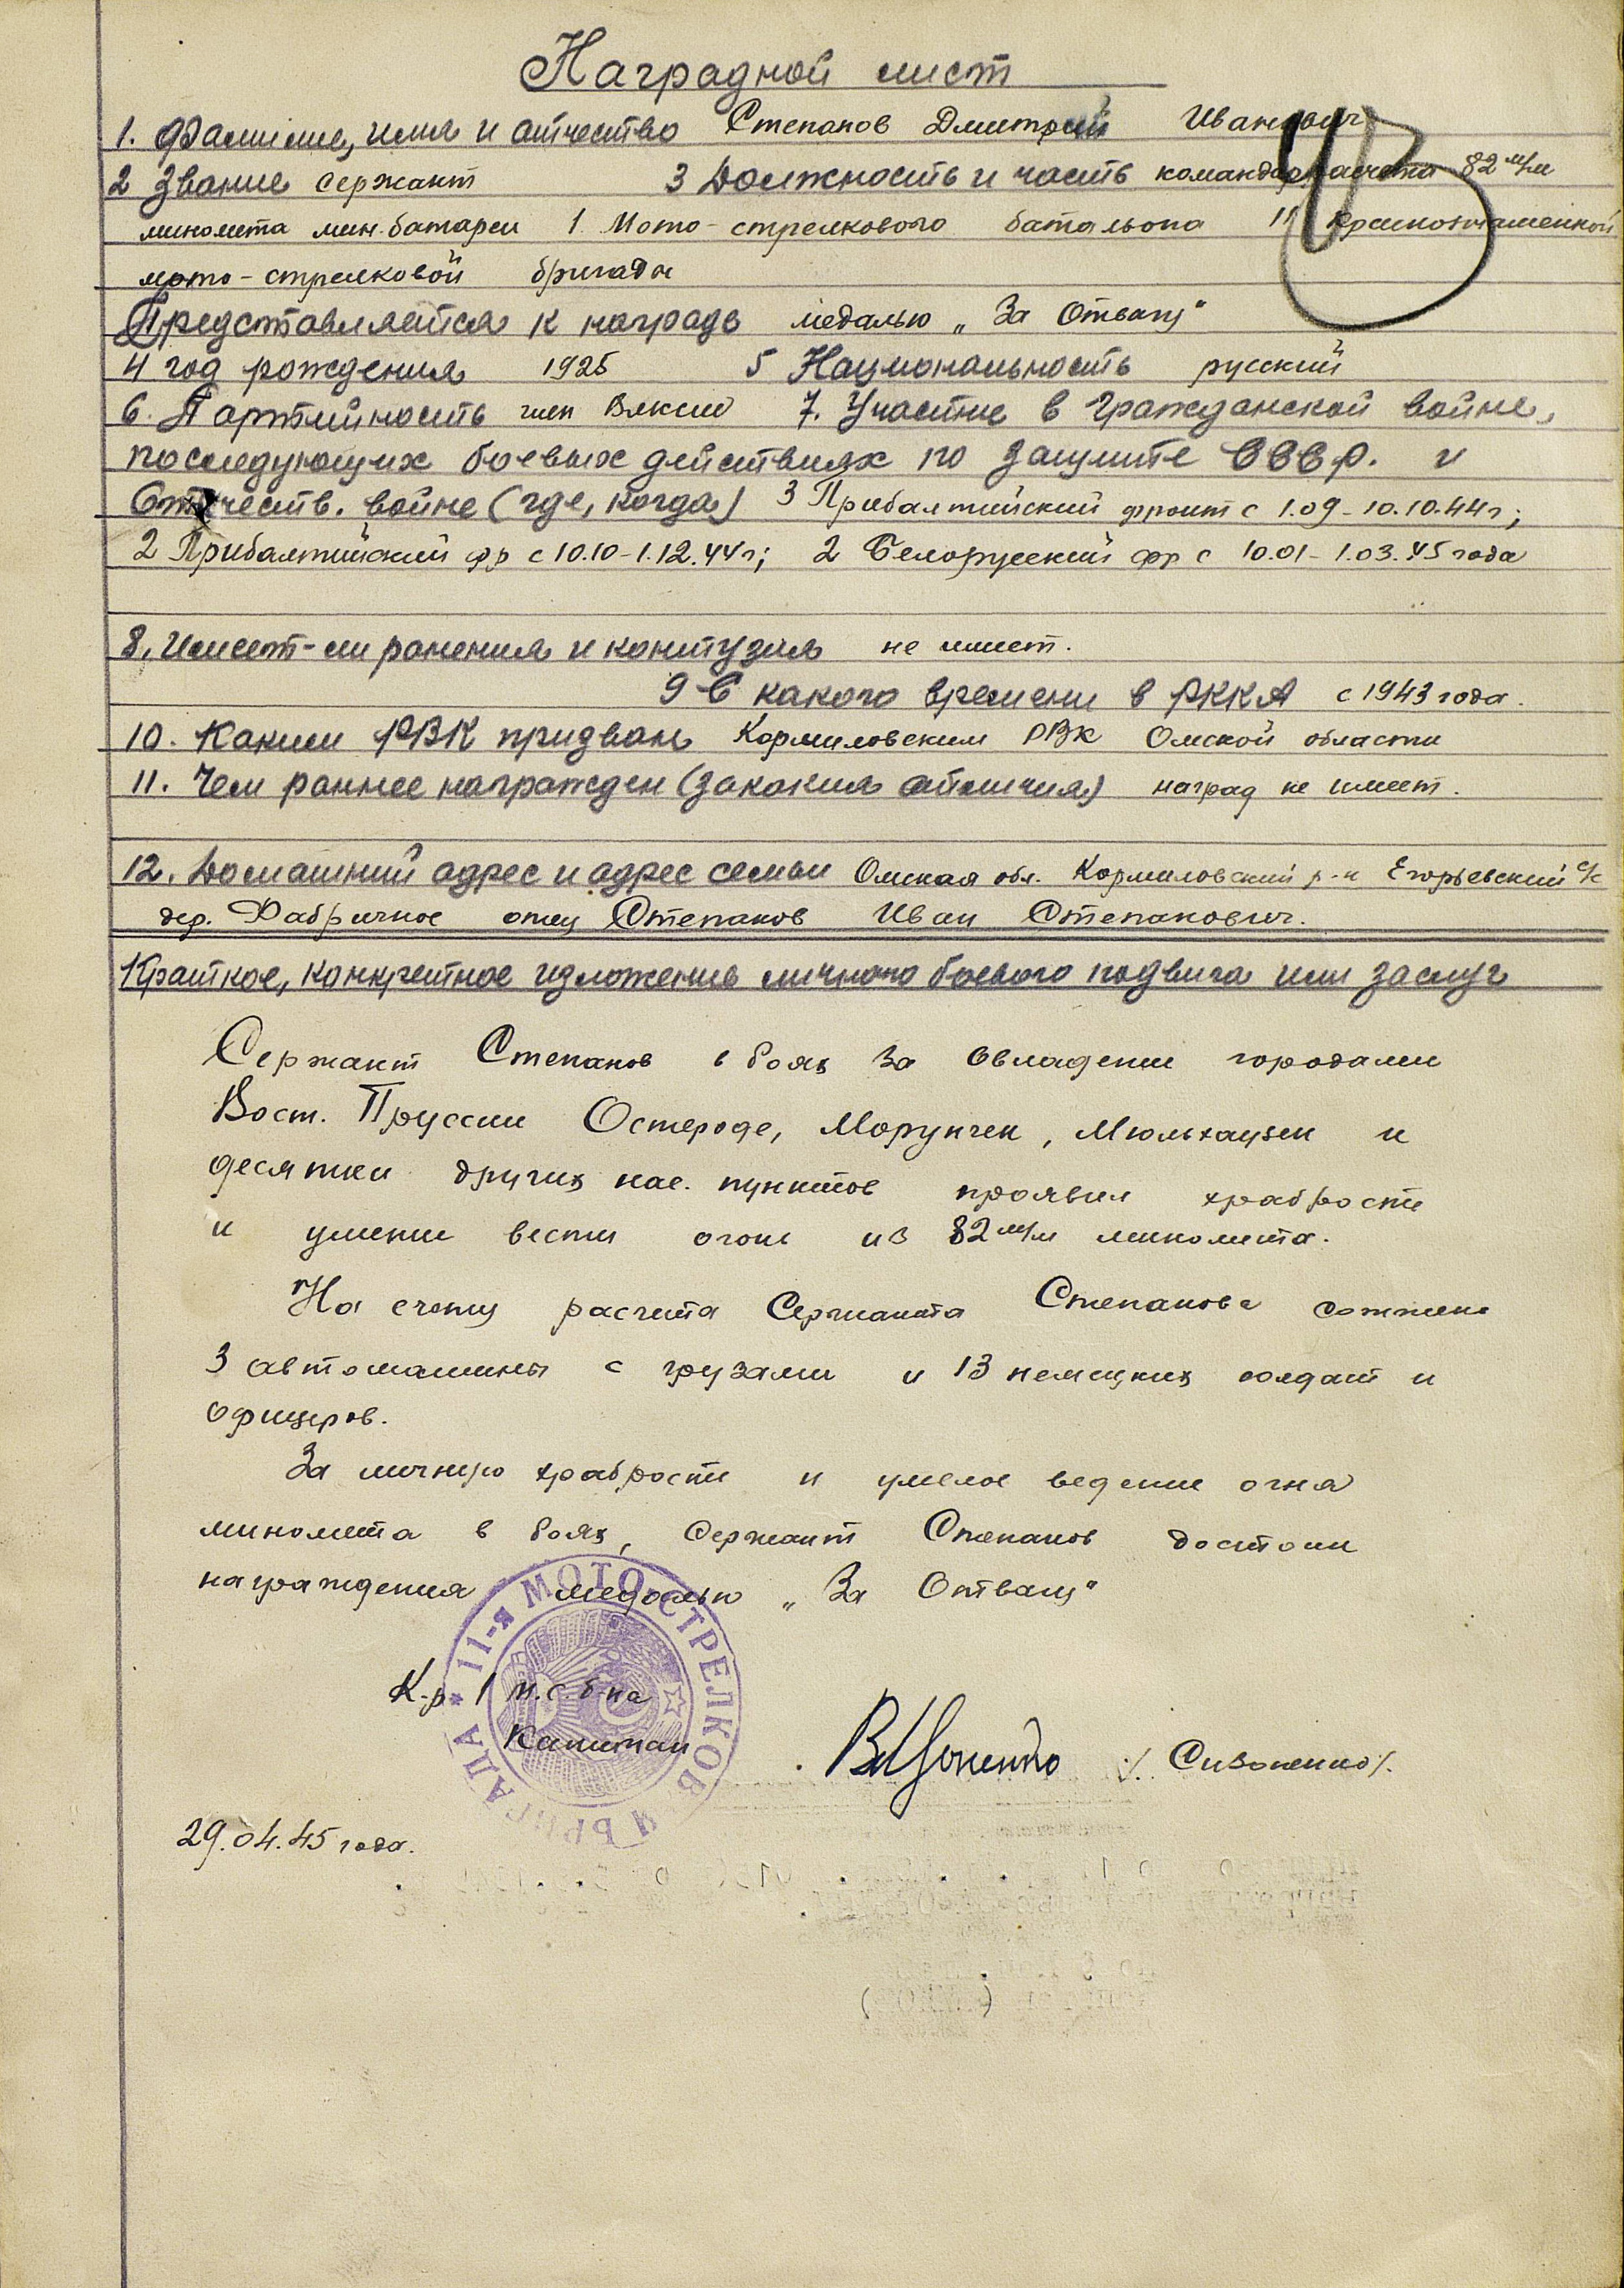 Наградной лист
1. Фамилие, имя и отчество Степанов Дмитрий Иванович
2 Звание сержант 3 Должность и часть командир расчета 82 м/м
миномета мин. батареи 1 Мото-стрелкового батальона 11 Краснознаменной
мото-стрелковой бригады
Представляется к награде медалью „За Отвагу"
4 год рождения 1925 5 Национальность русский
6. Партийность член ВЛКСМ 7. Участие в гражданской войне,
последующих боевых действиях по защите СССР. и
Отечеств. войне (где, когда) 3 Прибалтийский фронт с 1.09-10.10.44г;
2 Прибалтийский фр с 10.10-1.12.44г; 2 Белорусский фр с 10.01-1.03.45 года
8. Имеет-ли ранения и контузия не имеет.
9 С какого времени в РККА с 1943 года.
10. Каким РВК призван Кормиловским РВК Омской области
11. Чем раннее награжден (закакия отличия) наград не имеет.
12. Домашний адрес и адрес семьи Омская обл. Кормиловский р-н Егорьевский с/с
дер. Фабричное отец Степанов Иван Степанович.
Краткое, конкретное изложение личного боевого подвига или заслуг
Сержант Степанов в боях за овладение городами
Вост. Пруссии Остероде, Морунген, Мюльхаузен и
десятки других нас. пунктов проявил храбрость
и умение вести огонь из 82 м/м миномета.
На счету расчета Сержанта Степанова сожжено
3 автомашины с грузами и 13 немецких солдат и
офицеров.
За личную храбрость и умелое ведение огня
миномета в боях, Сержант Степанов достоин
награждения медалью „За Отвагу"
* 11-я МОТО-СТРЕЛКОВАЯ БРИГАДА
К-р 1 м.с.б-на
Капитан /Сизоненко/.
29.04.45 года.